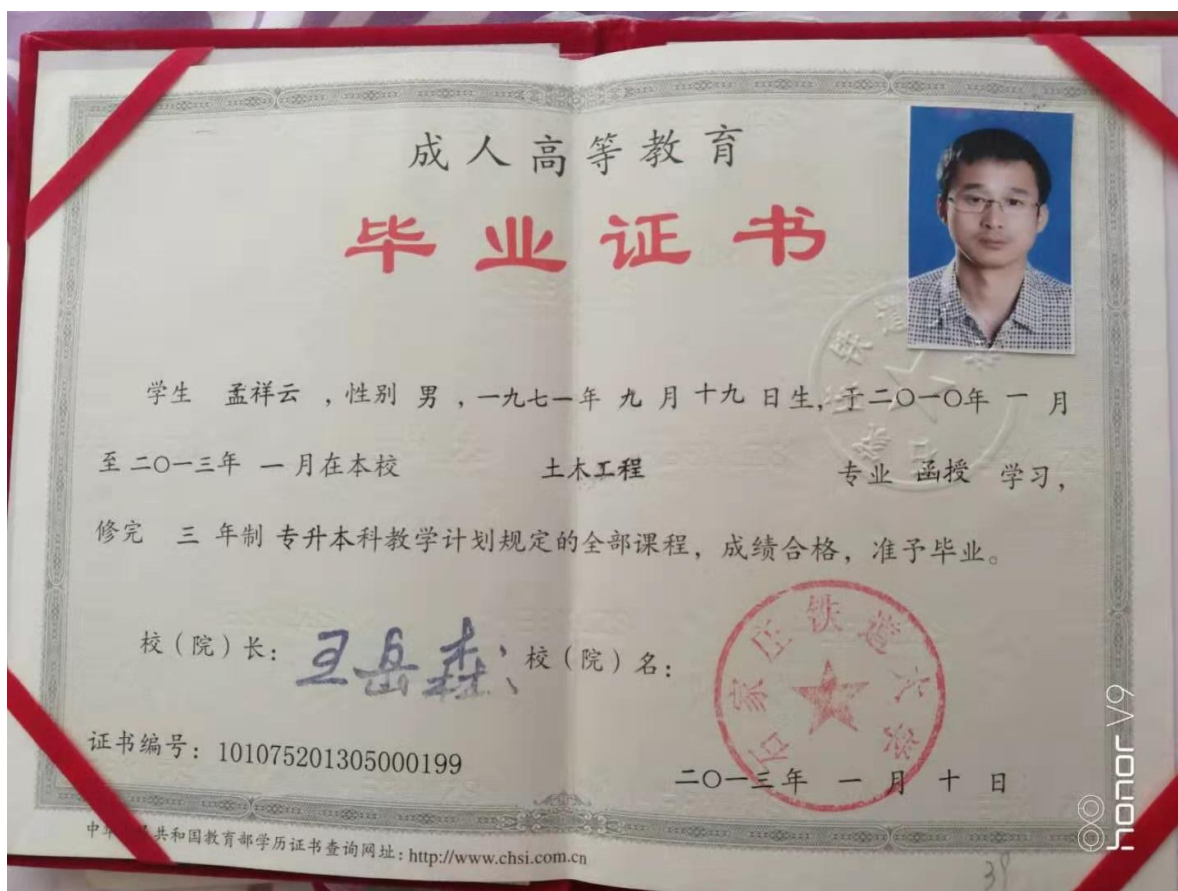 成人高等教育
毕业证书
学生 孟祥云 ，性别 男 ，一九七一年 九 月 十九 日生，于二〇一〇年 一 月
至 二〇一三年 一 月在本校 土木工程 专业 函授 学习，
修完 三 年制 专升本科教学计划规定的全部课程，成绩合格，准予毕业。
校（院）长： 王岳森 校（院）名：
石家庄铁道大学
证书编号：101075201305000199
二〇一三年 一 月 十 日
中华人民共和国教育部学历证书查询网址：http://www.chsi.com.cn
39
honor V9